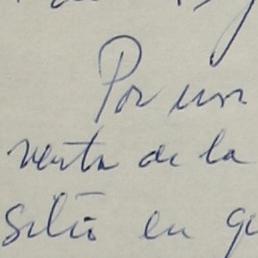 Por un
venta de la
sitio en q